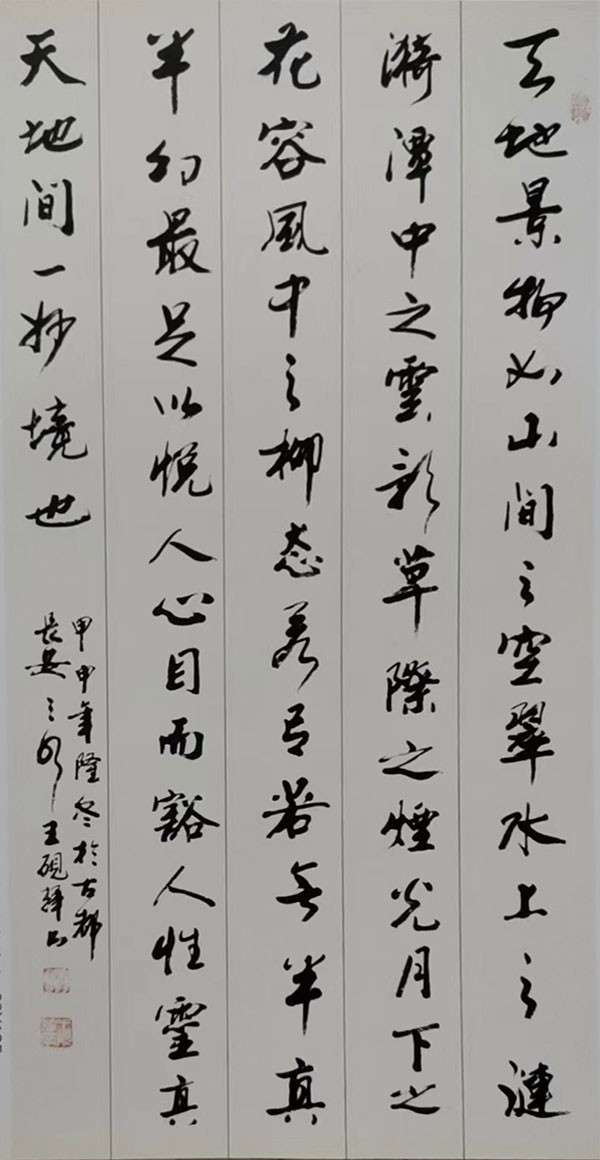 天地景物如山間之空翠水上之漣
漪潭中之雲影草際之煙光月下之
花容風中之柳態若有若無半真
半幻最足以悅人心目而豁人性靈真
天地間一妙境也
甲申年隆冬於古都
長安之 王硯 書